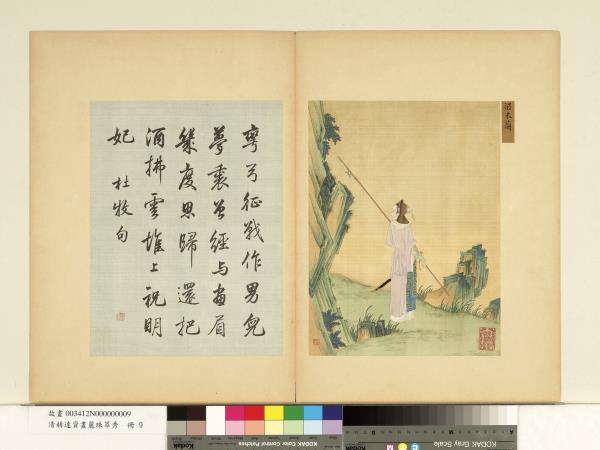 梁木蘭
彎弓征戰作男兒
夢裏曾經与畫眉
幾度思歸還把
酒拂雲堆上祝明
妃 杜牧句
故畫 003412N000000009
清赫達資畫麗珠萃秀 冊 9
Kodak Color Control Patches
KODAK Gray Scale